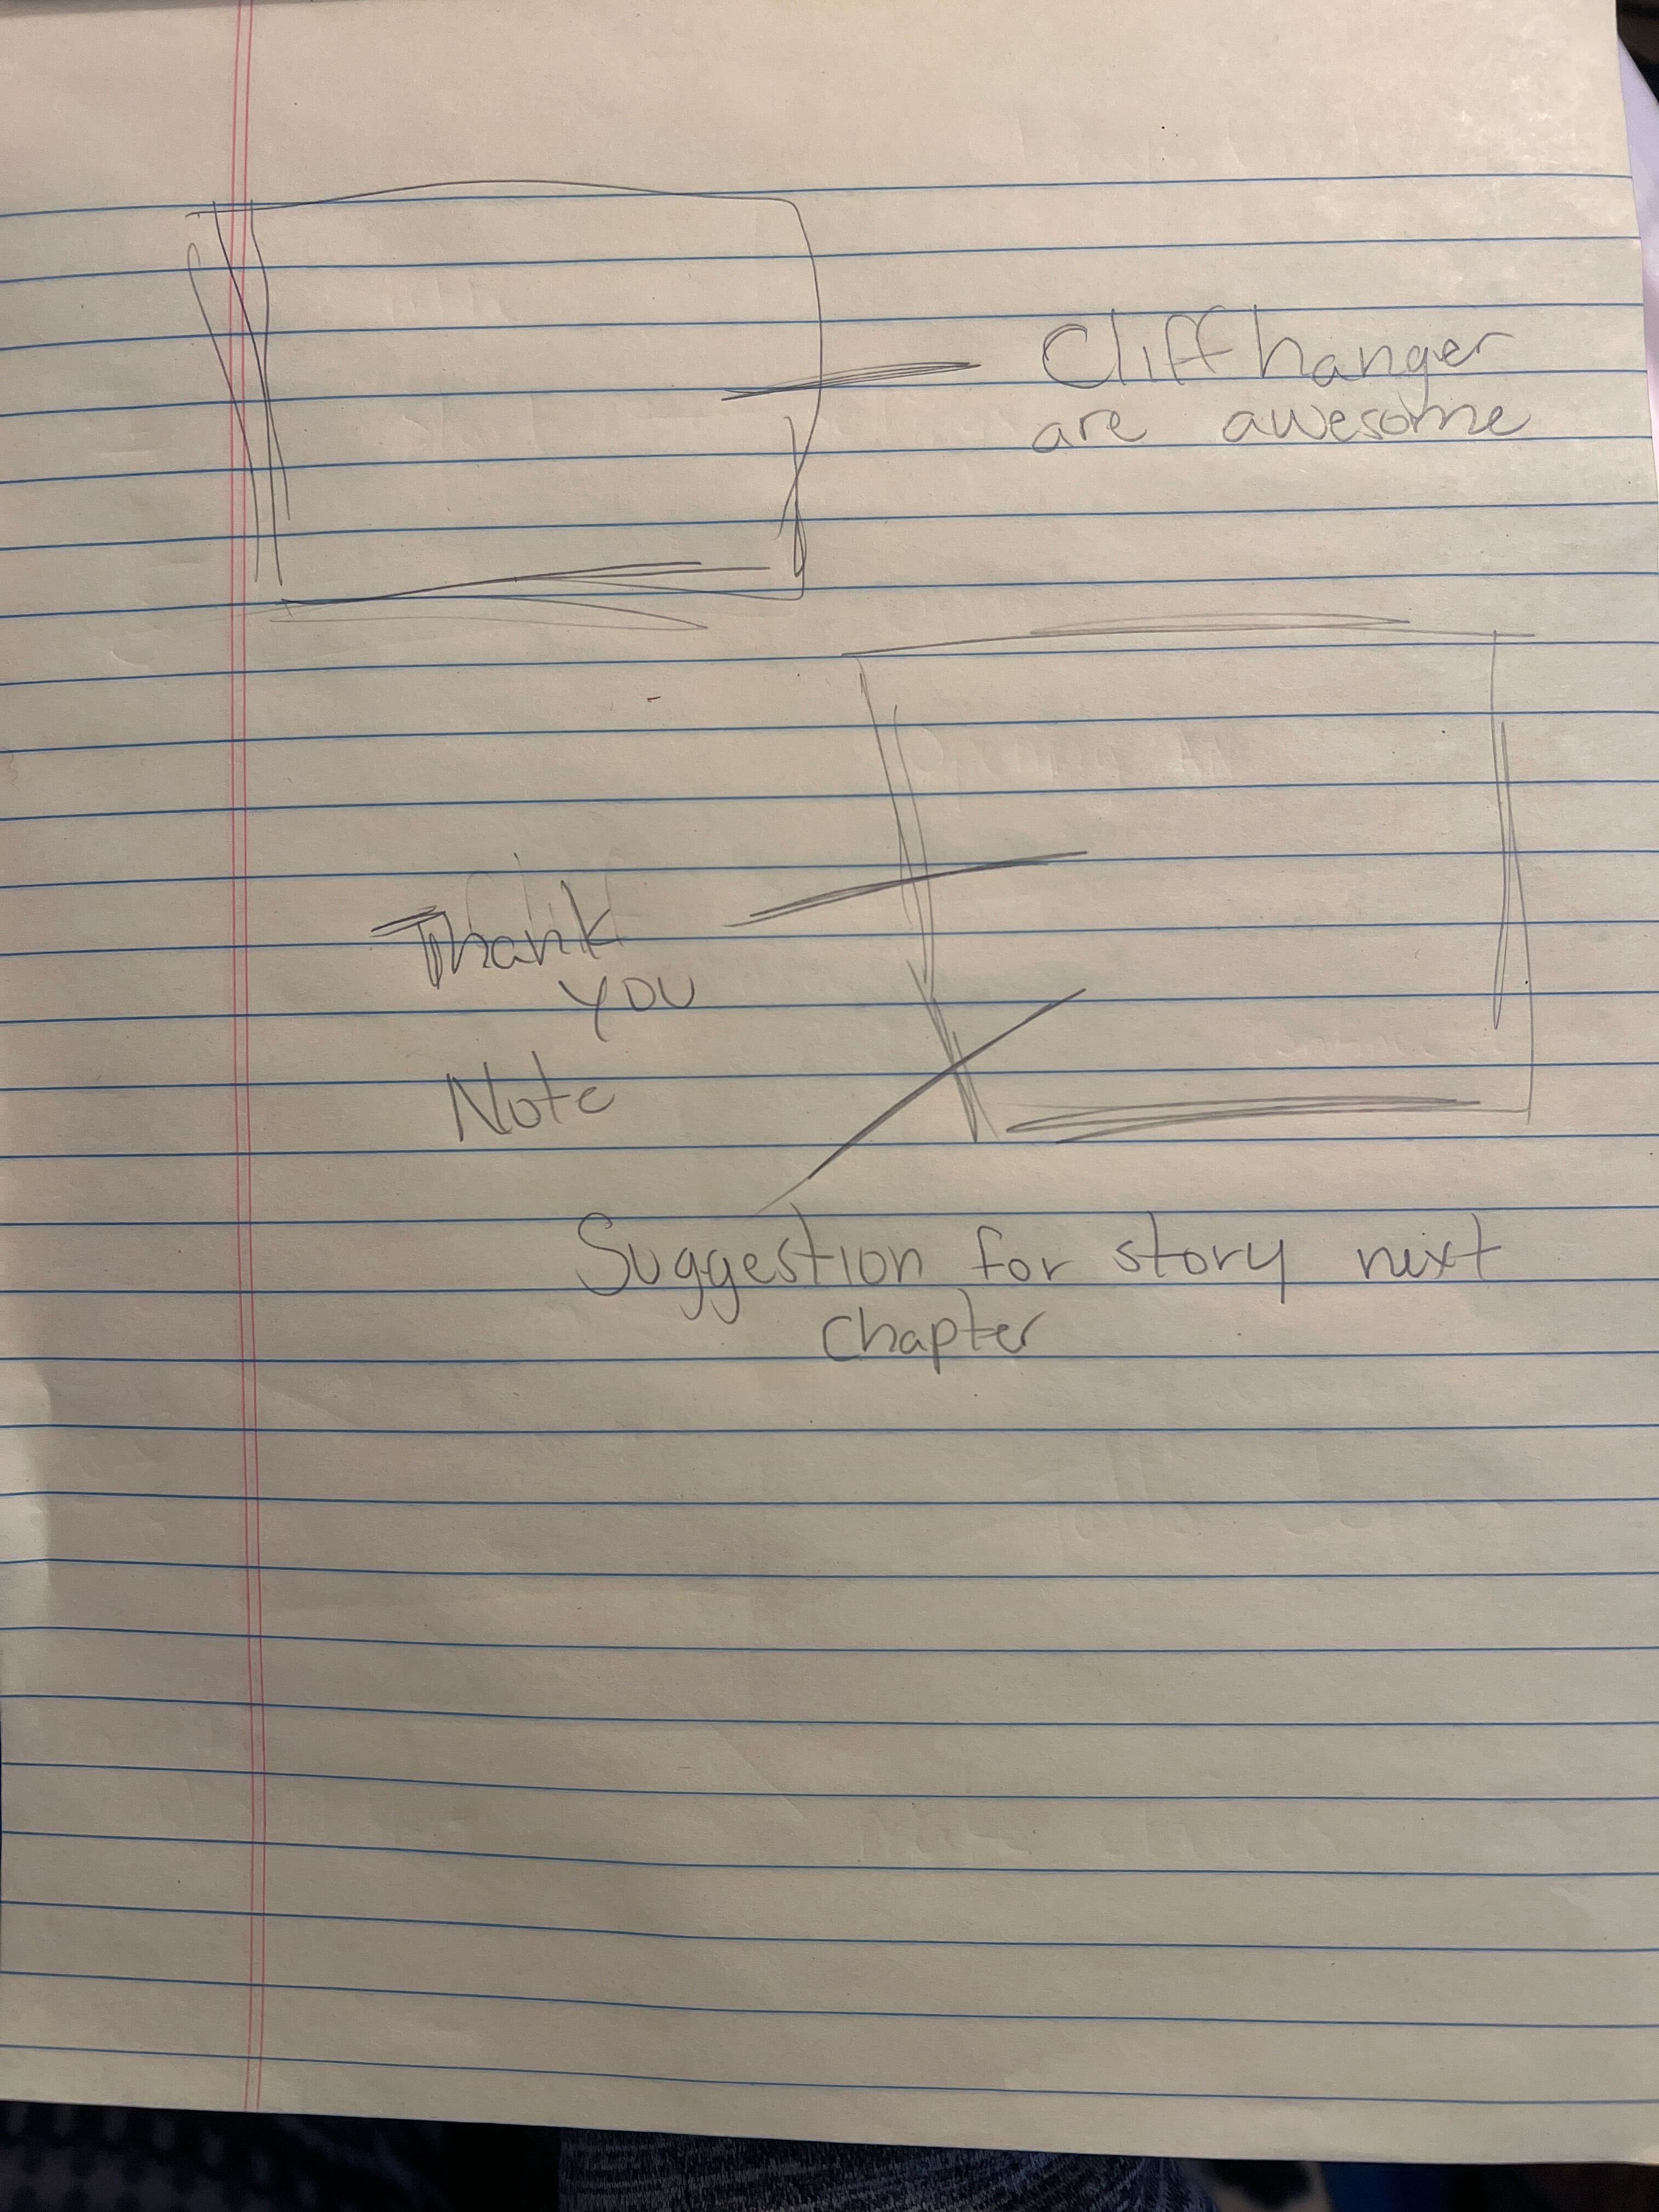 Cliffhanger
are awesome
Thank
you
Note
Suggestion for story next
chapter